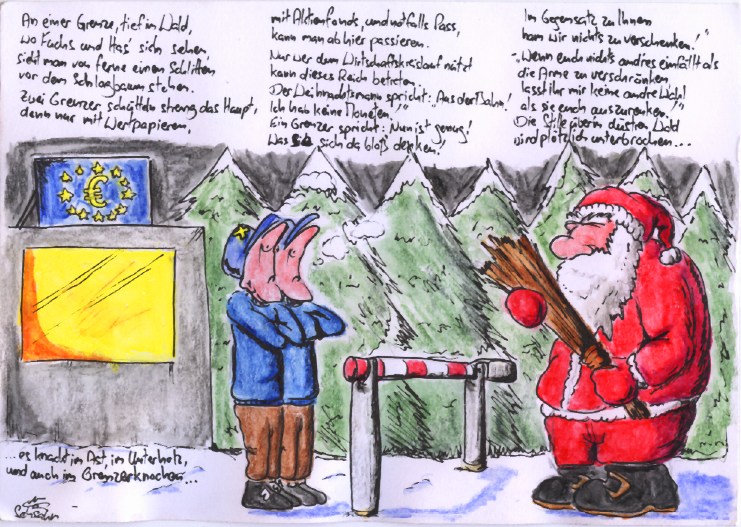 An einer Grenze, tief im Wald,
wo Fuchs und Has' sich sehen
sieht man von ferne einen Schlitten
vor dem Schlagbaum stehen.
Zwei Grenzer schütteln streng das Haupt,
denn nur mit Wertpapieren,
mit Aktienfonds, und notfalls Pass,
kann man ab hier passieren.
Nur wer dem Wirtschaftskreislauf nützt
kann dieses Reich betreten.
Der Weihnachtsmann spricht: „Aus der Bahn!
Ich hab keine Moneten!"
Ein Grenzer spricht: „Nun ist genug!
Was Sie sich da bloß denken!
Im Gegensatz zu Ihnen
ham wir nichts zu verschenken!"
-„Wenn euch nichts andres einfällt als
die Arme zu verschränken
lasst ihr mir keine andre Wahl
als sie euch auszurenken!"
Die Stille überm düstren Wald
wird plötzlich unterbrochen...
€
...es knackt im Ast, im Unterholz,
und auch im Grenzerknochen...